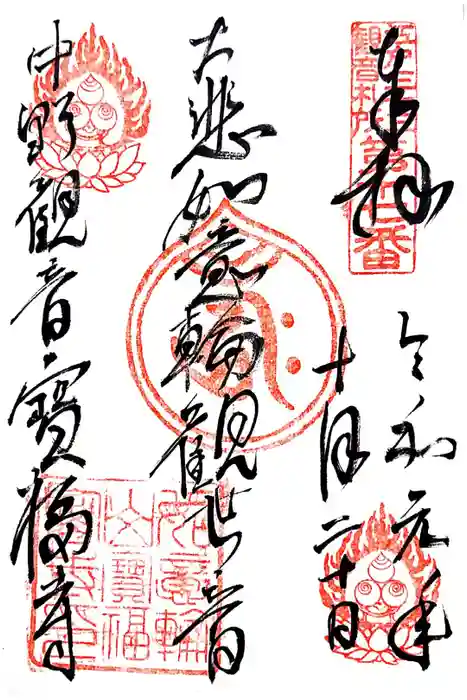 奉拝
令和元年
十月二十日
大悲如意輪観世音
中野観音寳福寺
観音札所第廿二番
如意輪
山寳福